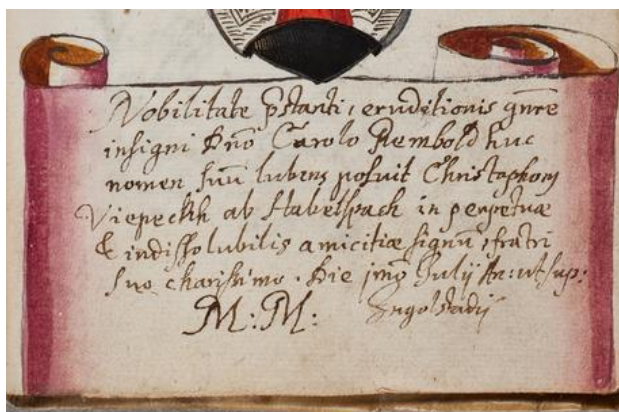 Nobilitate p̄stanti, eruditionis gn̄re
insigni Dn̄o Carolo Rembold huc
nomen suū lubens posuit Christophorꝰ
Viepeckh ab Habelspach in perpetuæ
& indissolubilis amicitiæ signū, fratri
suo charissimo. Die jmo Julij An: ut sup:
M: M: Ingolstadij